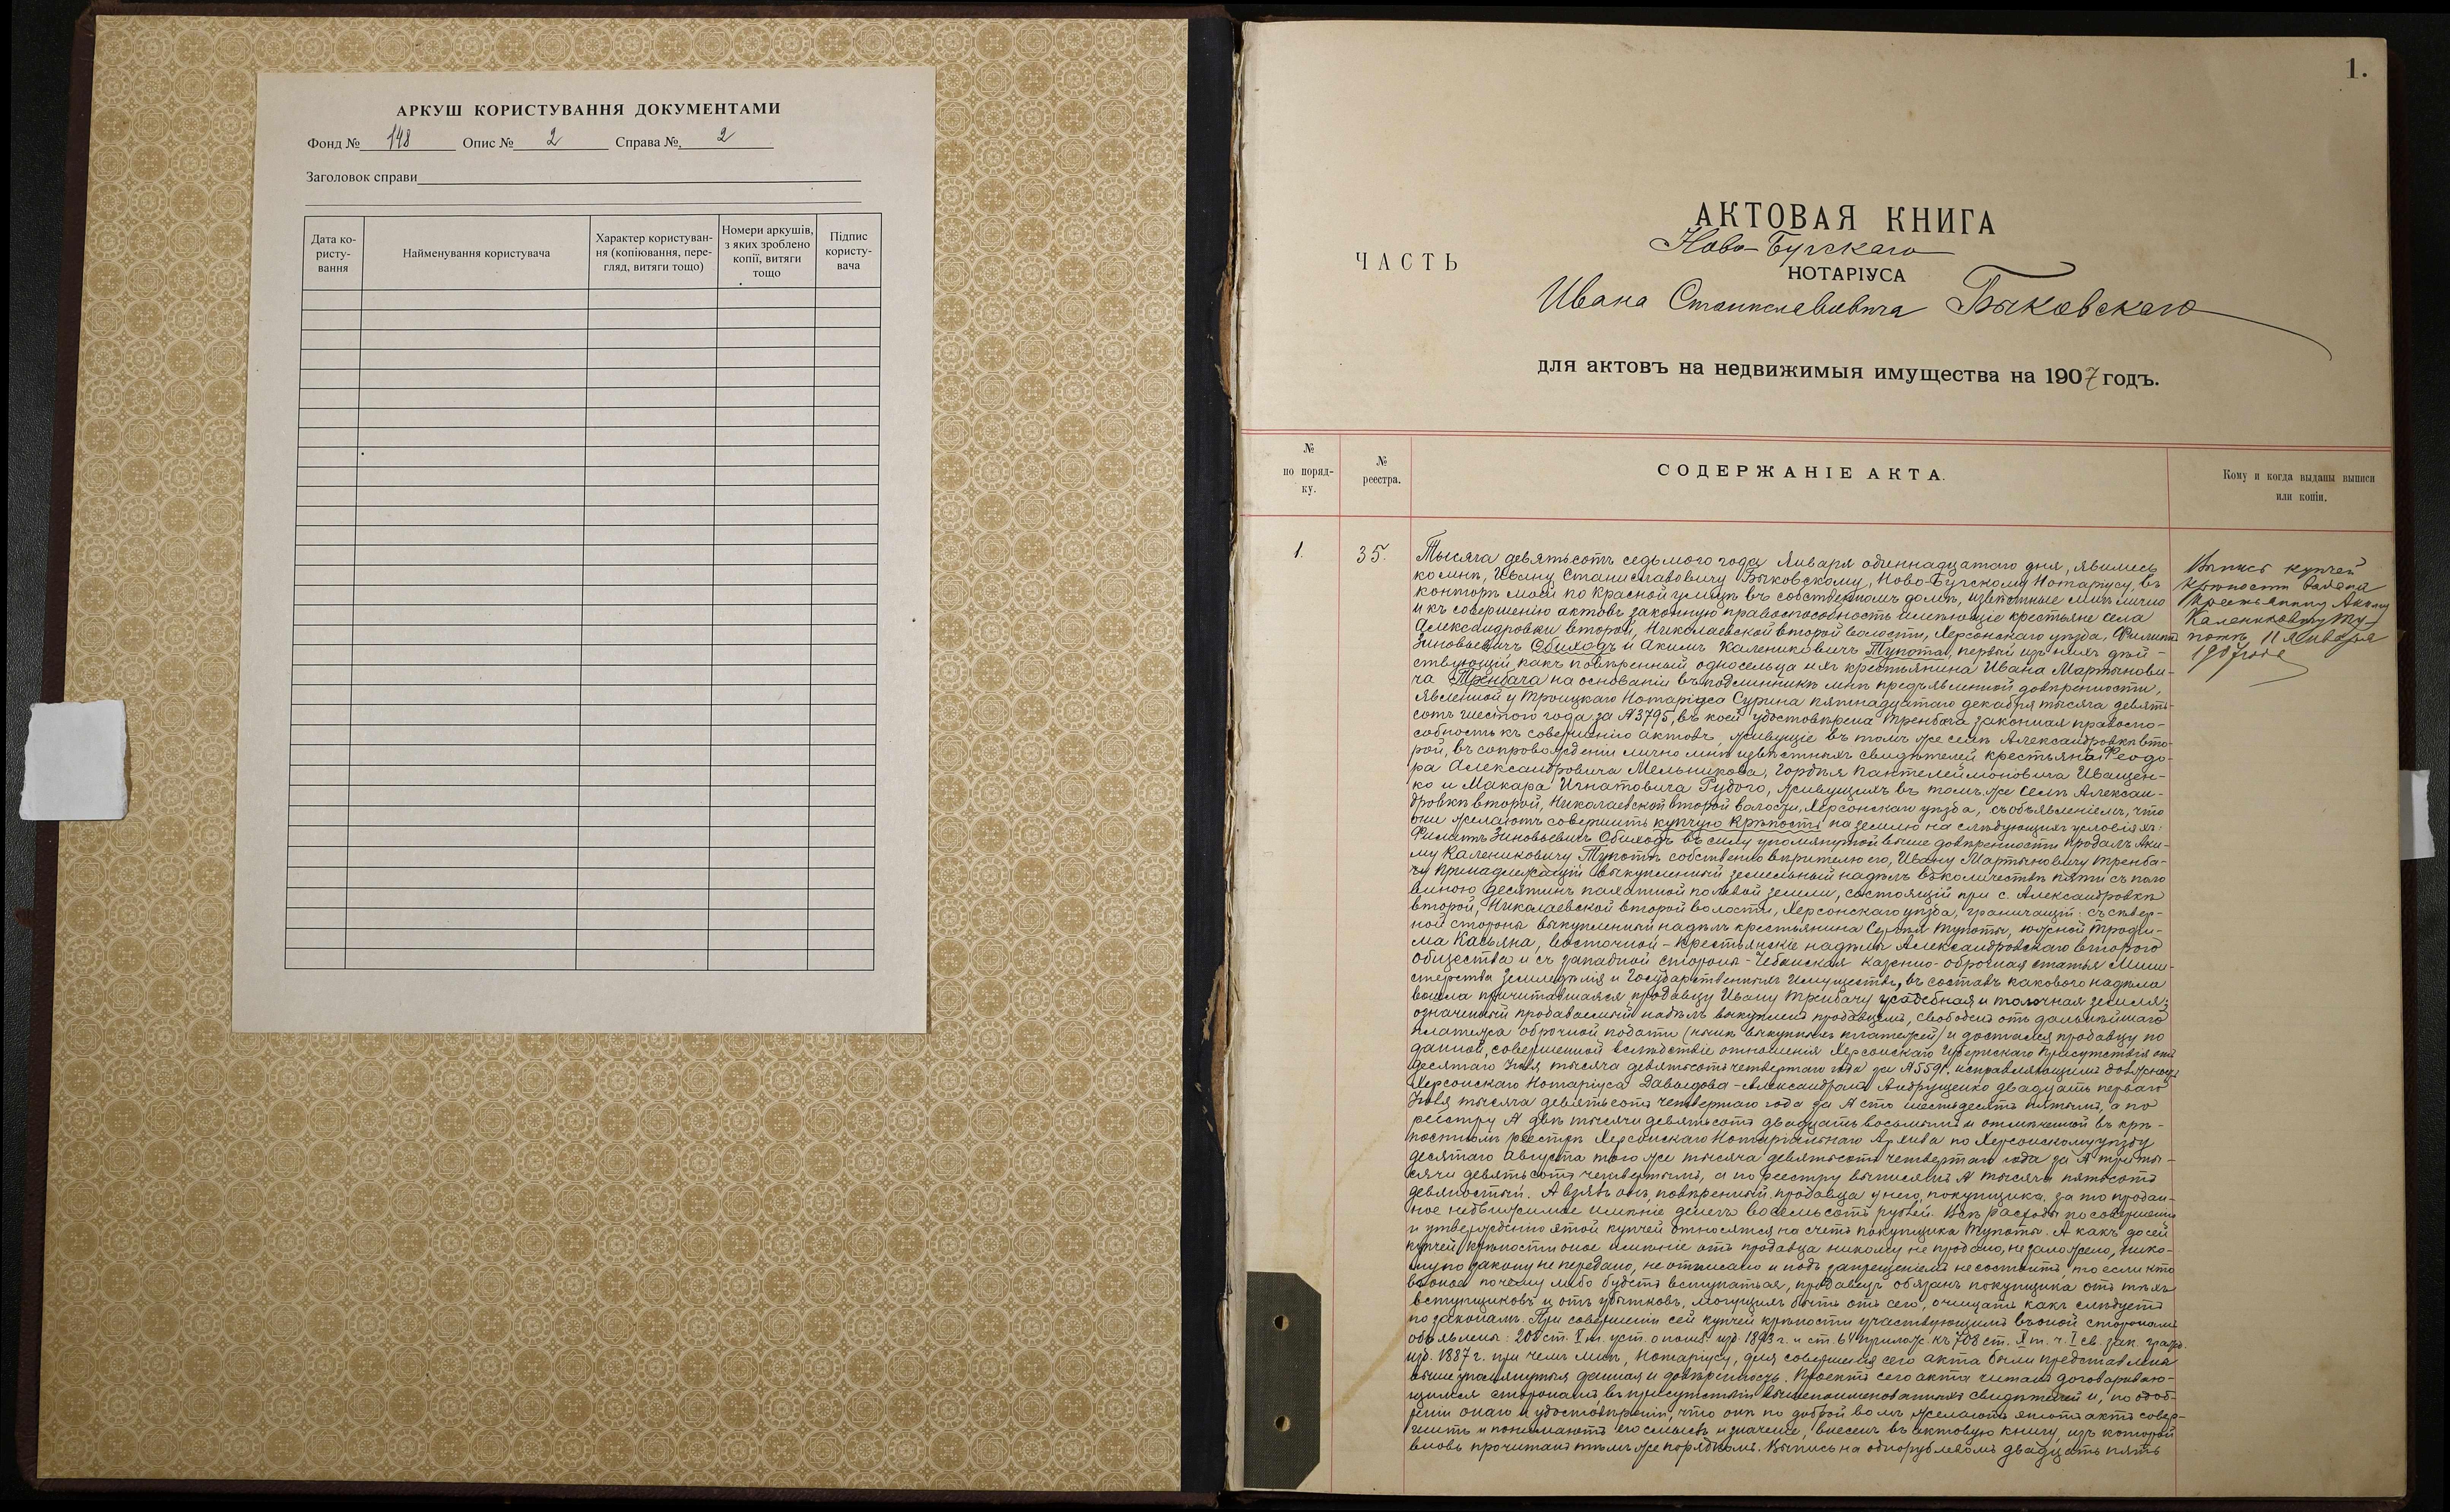 АРКУШ КОРИСТУВАННЯ ДОКУМЕНТАМИ
Фонд № 148 Опис № 2 Справа № 2
Заголовок справи
Дата ко-
ристу-
вання
Найменування користувача
Характер користуван-
ня (копіювання, пере-
гляд, витяги тощо)
Номери аркушів,
з яких зроблено
копії, витяги
тощо
Підпис
користу-
вача
1.
АКТОВАЯ КНИГА
Ново-Бугскаго
ЧАСТЬ
НОТАРІУСА
Ивана Станиславовича Быковскаго
для актовъ на недвижимыя имущества на 1907 годъ.
№
по поряд-
ку.
№
реестра.
СОДЕРЖАНІЕ АКТА.
Кому и когда выданы выписи
или копіи.
1.
35.
Тысяча девятьсотъ седьмого года Января одиннадцатаго дня, явились
ко мнѣ, Ивану Станиславовичу Быковскому, Ново-Бугскому Нотаріусу, въ
конторѣ моей по Красной улицѣ въ собственномъ домѣ, извѣстные мнѣ лично
и къ совершенію актовъ законную правоспособность имѣющіе крестьяне села
Александровки второй, Николаевской второй волости, Херсонскаго уѣзда, Филиппъ
Зиновьевичъ Обиходъ и Акимъ Калениковичъ Тупота, первый изъ нихъ дѣй-
ствующій какъ повѣренный односельца ихъ крестьянина Ивана Мартынови-
ча Тренбача на основаніи въ подлинникѣ мнѣ предъявленной довѣренности,
явленной у Троицкаго Нотаріуса Сурина пятнадцатаго декабря тысяча девять-
сотъ шестого года за №3795, въ коей удостовѣрена Тренбача законная правоспо-
собность къ совершенію актовъ, живущіе въ томъ же селѣ Александровкѣ вто-
рой, въ сопровожденіи лично мнѣ извѣстныхъ свидѣтелей крестьянъ: Феодо-
ра Александровича Мельникова, Гордѣя Пантелеймоновича Иващен-
ко и Макара Игнатовича Рудого, живущихъ въ томъ же селѣ Алексан-
дровкѣ второй, Николаевской второй волости, Херсонскаго уѣзда, съ объявленіемъ, что
они желаютъ совершить купчую крѣпость на землю на слѣдующихъ условіяхъ:
Филиппъ Зиновьевичъ Обиходъ въ силу упомянутой выше довѣренности продалъ Аки-
му Калениковичу Тупотѣ собственно вѣрителю его, Ивану Мартыновичу Тренба-
чу принадлежащій выкупленный земельный надѣлъ въ количествѣ пяти съ поло
виною десятинъ пахатной полевой земли, состоящій при с. Александровкѣ
второй, Николаевской второй волости, Херсонскаго уѣзда, граничащій: съ сѣвер-
ной стороны выкупленный надѣлъ крестьянина Сергѣя Тупоты, южной Трофи-
ма Касьяна, восточной - крестьянскіе надѣлы Александровскаго второго
общества и съ западной стороны - Чебанская казенно-оброчная статья Мини-
стерства Земледѣлія и Государственныхъ Имуществъ, въ составъ какового надѣла
вошла причитавшаяся продавцу Ивану Тренбачу усадебная и толочная земля;
означенный продаваемый надѣлъ выкупленъ продавцемъ, свободенъ отъ дальнѣйшаго
платежа оброчной подати (нынѣ выкупныхъ платежей) и достался продавцу по
данной, совершенной вслѣдствіе отношенія Херсонскаго Губернскаго Присутствія отъ
десятаго Іюля тысяча девятьсотъ четвертаго года за №5591. исправляющимъ должность
Херсонскаго Нотаріуса Давыдова - Александромъ Андрущенко двадцать перваго
Іюля тысяча девятьсотъ четвертаго года за № сто шестьдесятъ пятымъ, а по
реестру № двѣ тысячи девятьсотъ двадцать восьмымъ и отмѣченной въ крѣ-
постномъ реестрѣ Херсонскаго Нотаріальнаго Архива по Херсонскому уѣзду
десятаго Августа того же тысяча девятьсотъ четвертаго года за № три ты-
сячи девятьсотъ четвертымъ, а по реестру выписей № тысяча пятьсотъ
девяностый. А взялъ онъ, повѣренный продавца у него, покупщика, за то продан-
ное недвижимое имѣніе денегъ восемьсотъ рублей. Всѣ расходы по совершенію
и утвержденію этой купчей относятся на счетъ покупщика Тупоты. А какъ до сей
купчей крѣпости оное имѣніе отъ продавца никому не продано, не заложено, нико-
му по закону не передано, не отписано и подъ запрещеніемъ не состоитъ, то если кто
въ оное почему либо будетъ вступаться, продавецъ обязанъ покупщика отъ тѣхъ
вступщиковъ и отъ убытковъ, могущихъ быть отъ сего, очищать какъ слѣдуетъ
по законамъ. При совершеніи сей купчей крѣпости участвующимъ въ оной сторонамъ
объявлены: 208 ст. V т. уст. о пошл. изд. 1893 г. и ст. 64 прилож. къ 708 ст. X т. ч. I св. зак. гражд.
изд. 1887 г. при чемъ мнѣ, Нотаріусу, для совершенія сего акта были представлены
выше упомянутыя данная и довѣренность. Проектъ сего акта читанъ договариваю-
щимся сторонамъ въ присутствіи вышепоименованныхъ свидѣтелей и, по одоб-
реніи онаго и удостовѣреніи, что они по доброй волѣ желаютъ этотъ актъ совер-
шить и понимаютъ его смыслъ и значеніе, внесенъ въ актовую книгу, изъ которой
вновь прочитанъ тѣмъ же порядкомъ. Выпись на однорублевомъ двадцать пять
Выпись купчей
крѣпости выдана
крестьянину Акиму
Калениковичу Ту-
потѣ 11 Января
1907 года